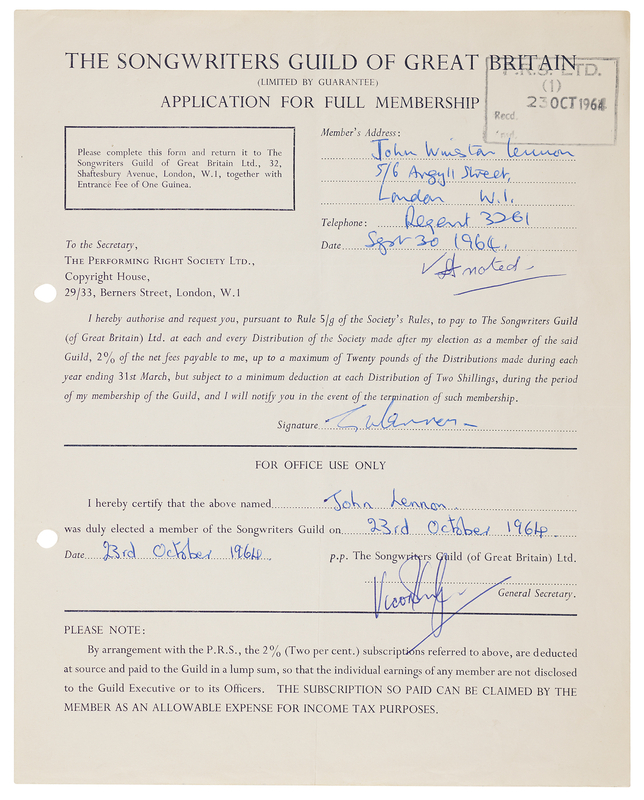 THE SONGWRITERS GUILD OF GREAT BRITAIN
(LIMITED BY GUARANTEE)
APPLICATION FOR FULL MEMBERSHIP
P.R.S. LTD.
(1)
23 OCT 1964
Recd.
Please complete this form and return it to The
Songwriters Guild of Great Britain Ltd., 32,
Shaftesbury Avenue, London, W.1, together with
Entrance Fee of One Guinea.
Member's Address:
John Winston Lennon
5/6 Argyll Street,
London W.1.
Telephone: Regent 3261
Date Sept 30 1964.
noted
To the Secretary,
THE PERFORMING RIGHT SOCIETY LTD.,
Copyright House,
29/33, Berners Street, London, W.1
I hereby authorise and request you, pursuant to Rule 5/g of the Society's Rules, to pay to The Songwriters Guild
(of Great Britain) Ltd. at each and every Distribution of the Society made after my election as a member of the said
Guild, 2% of the net fees payable to me, up to a maximum of Twenty pounds of the Distributions made during each
year ending 31st March, but subject to a minimum deduction at each Distribution of Two Shillings, during the period
of my membership of the Guild, and I will notify you in the event of the termination of such membership.
Signature
FOR OFFICE USE ONLY
I hereby certify that the above named John Lennon.
was duly elected a member of the Songwriters Guild on 23rd October 1964.
Date 23rd October 1964. p.p. The Songwriters Guild (of Great Britain) Ltd.
General Secretary.
PLEASE NOTE:
By arrangement with the P.R.S., the 2% (Two per cent.) subscriptions referred to above, are deducted
at source and paid to the Guild in a lump sum, so that the individual earnings of any member are not disclosed
to the Guild Executive or to its Officers. THE SUBSCRIPTION SO PAID CAN BE CLAIMED BY THE
MEMBER AS AN ALLOWABLE EXPENSE FOR INCOME TAX PURPOSES.